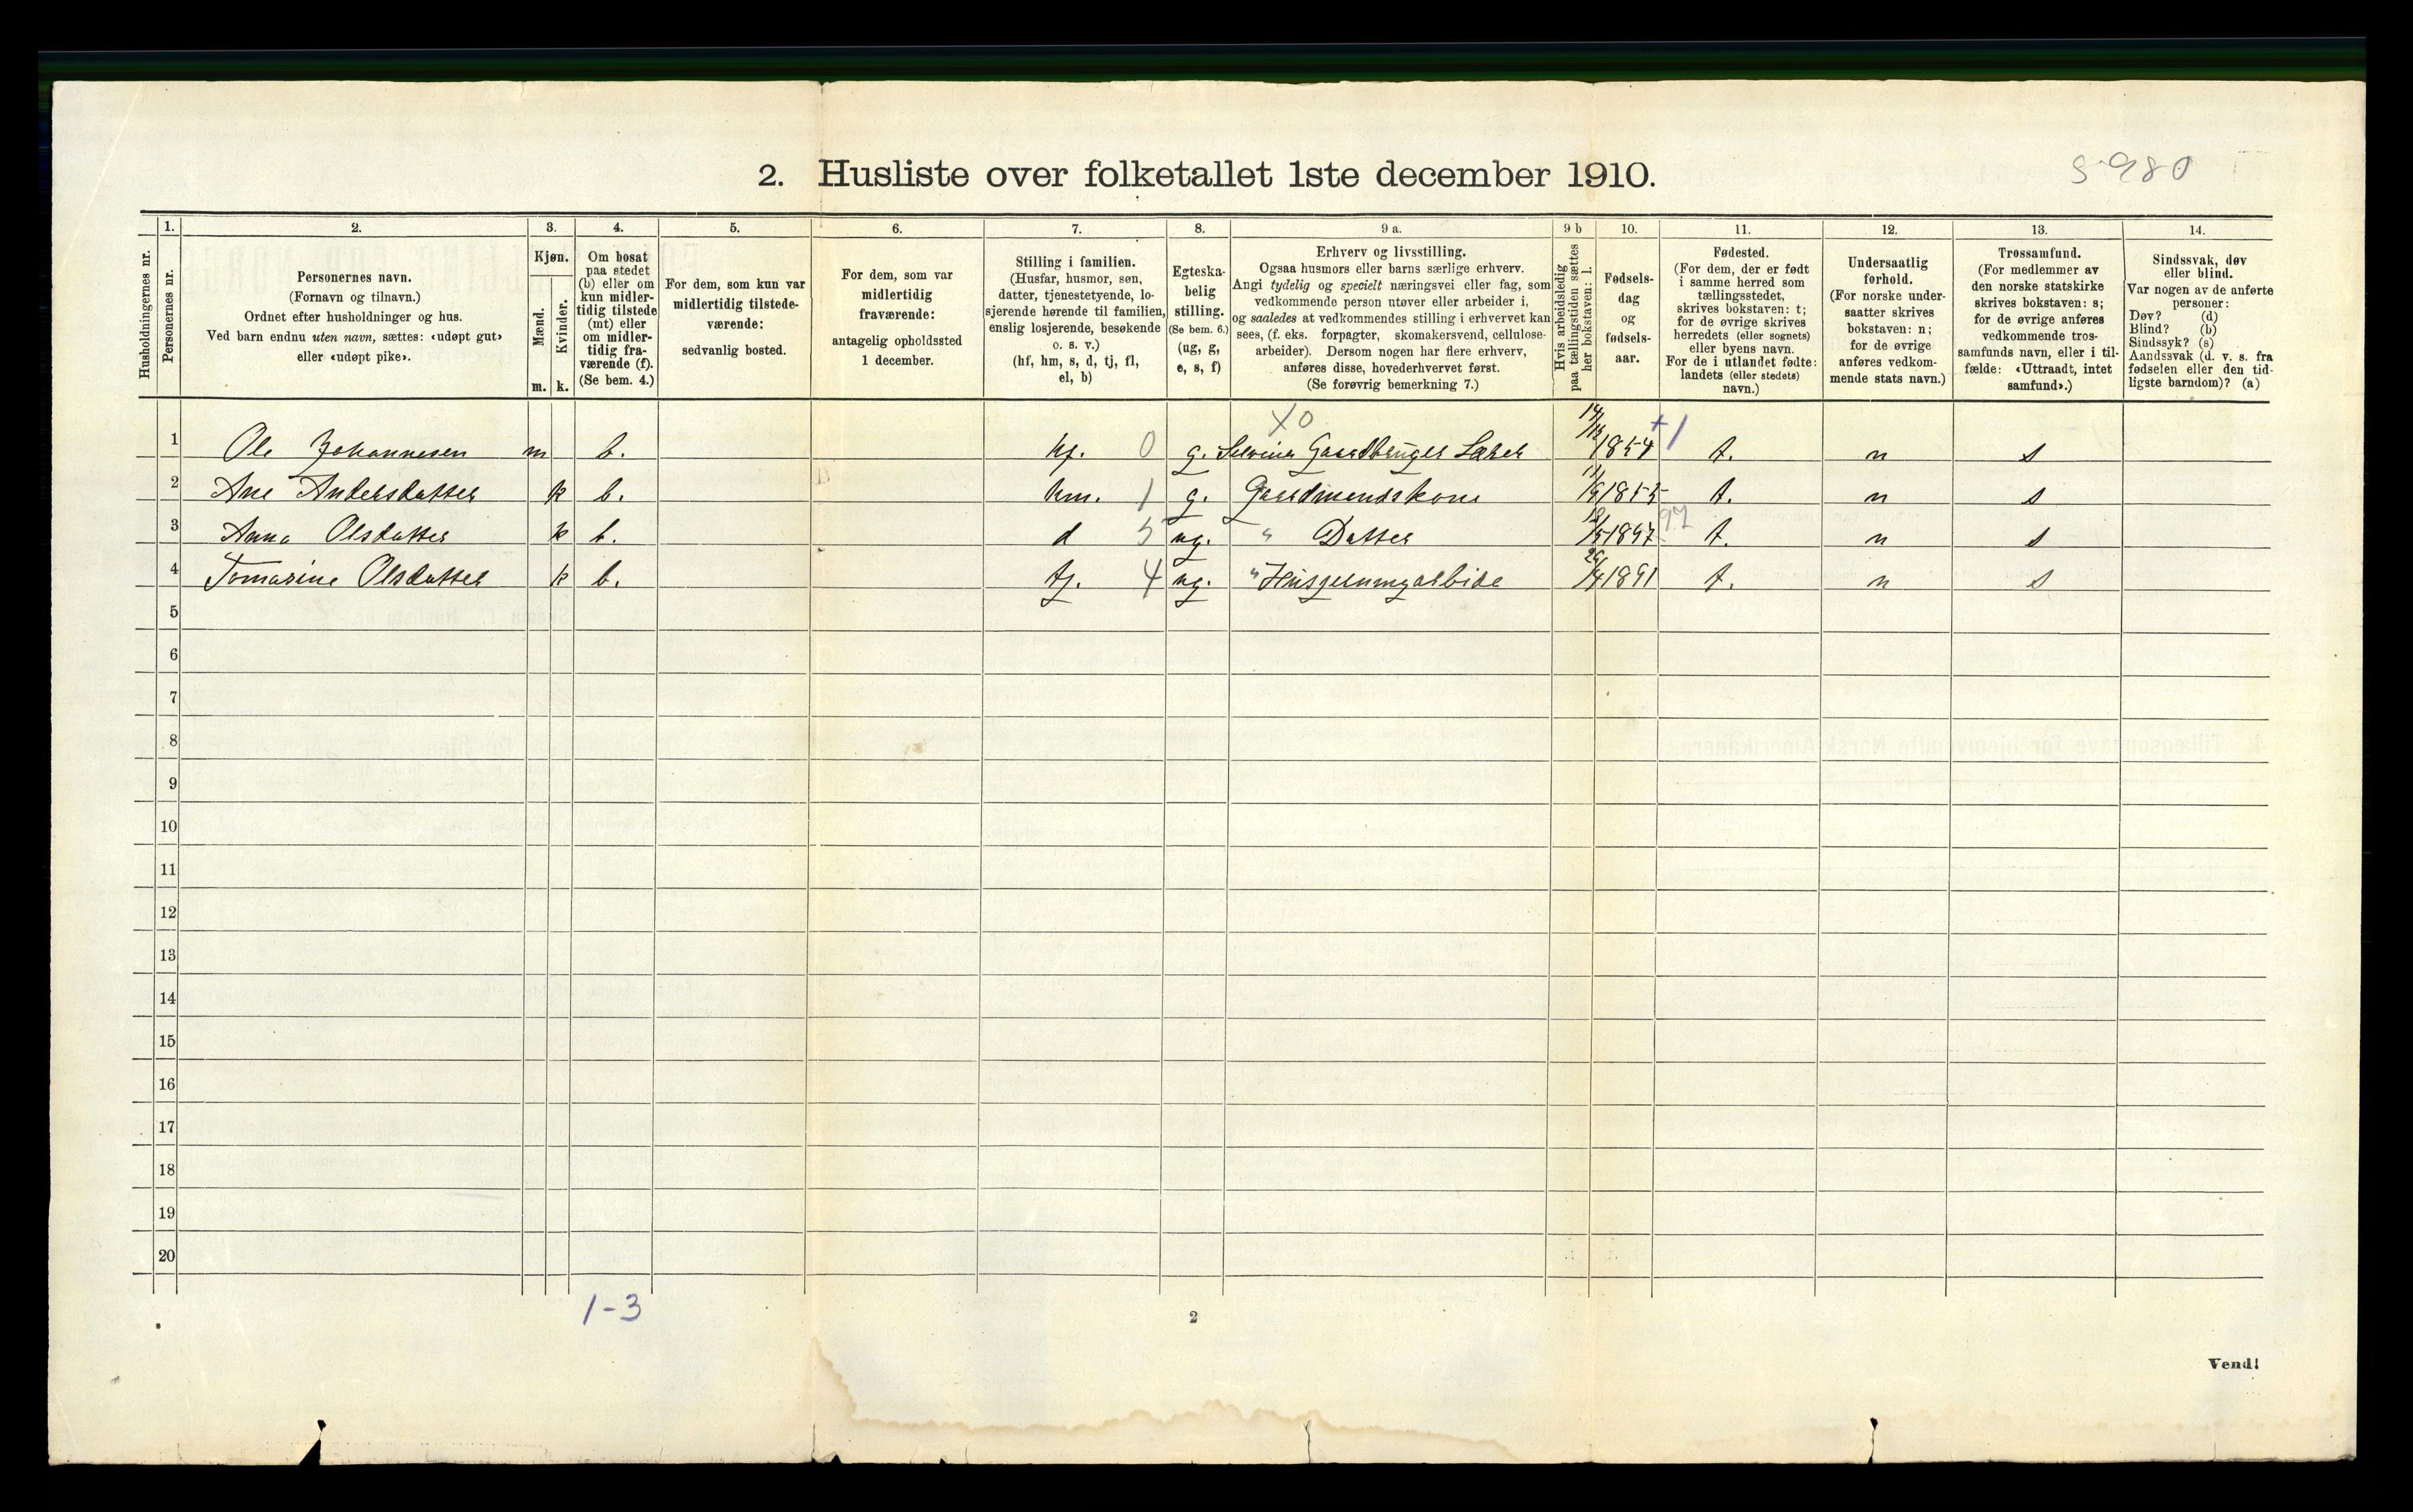 S 980
2. Husliste over folketallet 1ste december 1910.
Husholdningernes nr.
1.
Personernes nr.
2.
Personernes navn.
(Fornavn og tilnavn.)
Ordnet efter husholdninger og hus.
Ved barn endnu uten navn, sættes: «udøpt gut»
eller «udøpt pike».
3.
Kjøn.
Mænd.
Kvinder.
m. k.
4.
Om bosat
paa stedet
(b) eller om
kun midler-
tidig tilstede
(mt) eller
om midler-
tidig fra-
værende (f).
(Se bem. 4.)
5.
For dem, som kun var
midlertidig tilstede-
værende:
sedvanlig bosted.
6.
For dem, som var
midlertidig
fraværende:
antagelig opholdssted
1 december.
7.
Stilling i familien.
(Husfar, husmor, søn,
datter, tjenestetyende, lo-
sjerende hørende til familien,
enslig losjerende, besøkende
o. s. v.)
(hf, hm, s, d, tj, fl,
el, b)
8.
Egteska-
belig
stilling.
(Se bem. 6.)
(ug, g,
e, s, f)
9 a.
Erhverv og livsstilling.
Ogsaa husmors eller barns særlige erhverv.
Angi tydelig og specielt næringsvei eller fag, som
vedkommende person utøver eller arbeider i,
og saaledes at vedkommendes stilling i erhvervet kan
sees, (f. eks. forpagter, skomakersvend, cellulose-
arbeider). Dersom nogen har flere erhverv,
anføres disse, hovederhvervet først.
(Se forøvrig bemerkning 7.)
9 b
Hvis arbeidsledig
paa tællingstiden sættes
her bokstaven: l.
10.
Fødsels-
dag
og
fødsels-
aar.
11.
Fødested.
(For dem, der er født
i samme herred som
tællingsstedet,
skrives bokstaven: t;
for de øvrige skrives
herredets (eller sognets)
eller byens navn.
For de i utlandet fødte:
landets (eller stedets)
navn.)
12.
Undersaatlig
forhold.
(For norske under-
saatter skrives
bokstaven: n;
for de øvrige
anføres vedkom-
mende stats navn.)
13.
Trossamfund.
(For medlemmer av
den norske statskirke
skrives bokstaven: s;
for de øvrige anføres
vedkommende tros-
samfunds navn, eller i til-
fælde: «Uttraadt, intet
samfund».)
14.
Sindssvak, døv
eller blind.
Var nogen av de anførte
personer:
Døv? (d)
Blind? (b)
Sindssyk? (s)
Aandssvak (d. v. s. fra
fødselen eller den tid-
ligste barndom)? (a)
X0
1 Ole Johannesen m b. hf. 0 g. Selveier Gaardbruger Lærer 14/12 1854 +1 t. n s
2 Ane Andersdatter k b. hm. 1 g. Gaardmandskone 11/9 1855 t. n s
3 Anna Olsdatter k b. d 5 ug. " Datter 1897 97 t. n s
4 Tomasine Olsdatter k b. tj. 4 ug. " 29/4 1891 t. n s
5
6
7
8
9
10
11
12
13
14
15
16
17
18
19
20
1-3
2
Vend!